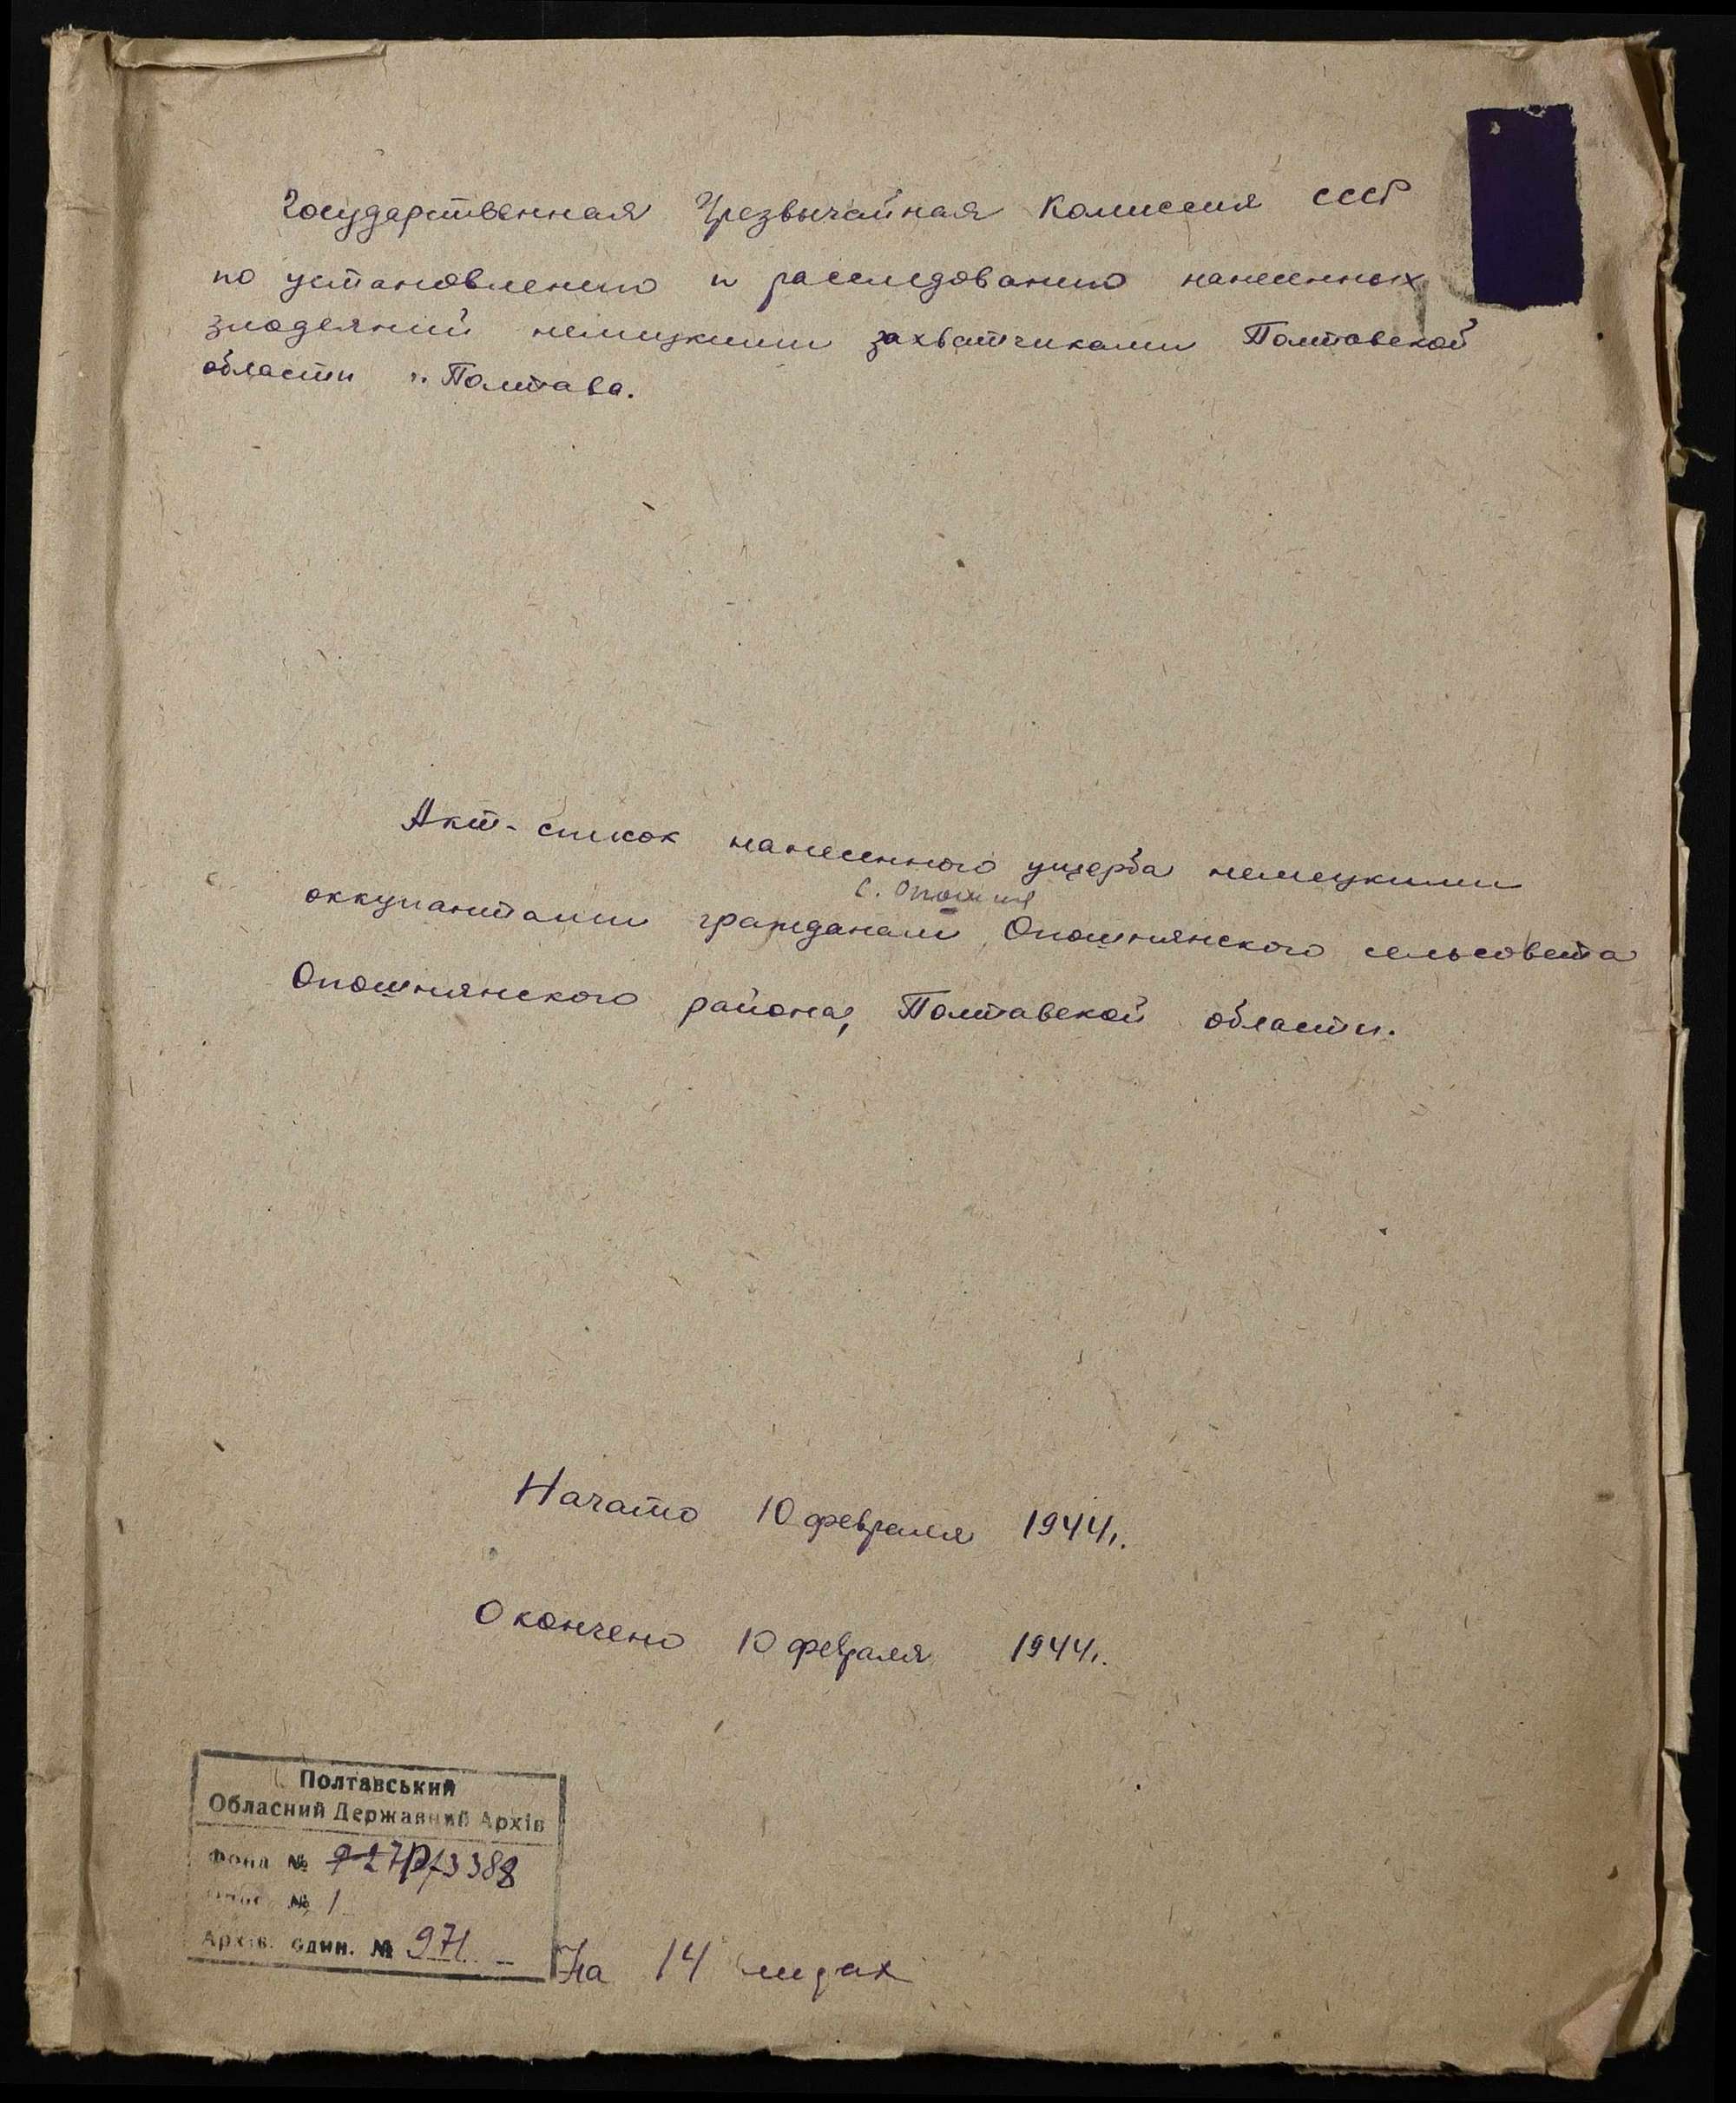 Государственная Чрезвычайная Комиссия СССР
по установлению и расследованию нанесенных
злодеяний немецкими захватчиками Полтавской
области г. Полтава.
Акт-список нанесенного ущерба немецкими
с. Опошня
оккупантами гражданам Опошнянского сельсовета
Опошнянского района, Полтавской области.
Начато 10 февраля 1944г.
Окончено 10 февраля 1944г.
Полтавський
Обласний Державний Архів
Фонд № Р-3388
№ 1
Архів. один. № 971
На 14 лист